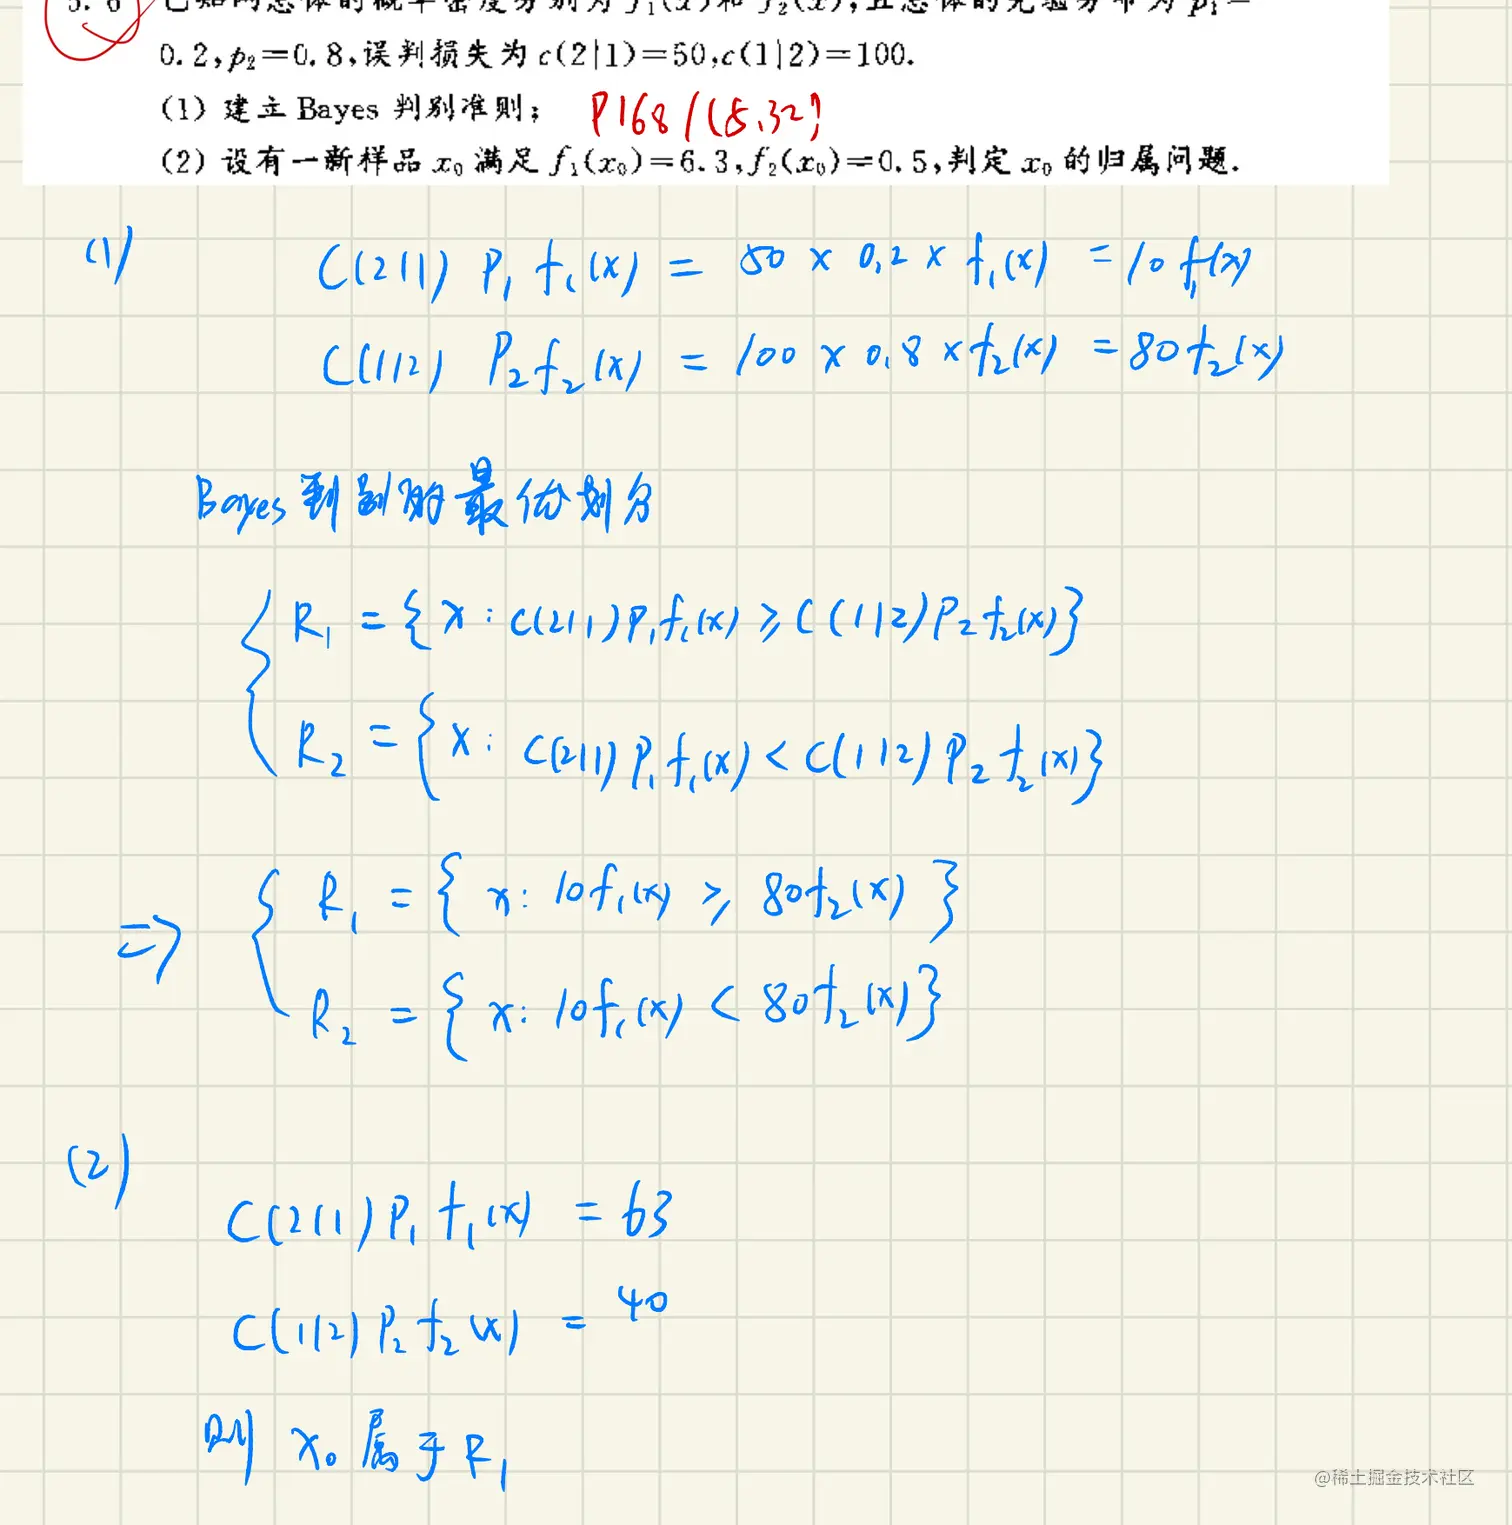 5.6 已知两总体的概率密度分别为 f₁(x)和 f₂(x),且总体的先验分布为 p₁=
0.2,p₂=0.8,误判损失为 c(2|1)=50,c(1|2)=100.
(1) 建立 Bayes 判别准则; P168/(5.32)
(2) 设有一新样品 x₀ 满足 f₁(x₀)=6.3,f₂(x₀)=0.5,判定 x₀ 的归属问题.
(1) C(2|1) P₁ f₁(x) = 50 × 0.2 × f₁(x) = 10 f₁(x)
C(1|2) P₂ f₂(x) = 100 × 0.8 × f₂(x) = 80 f₂(x)
Bayes 判别的最优划分
{ R₁ = {x: C(2|1) P₁ f₁(x) ≥ C(1|2) P₂ f₂(x)}
R₂ = {x: C(2|1) P₁ f₁(x) < C(1|2) P₂ f₂(x)}
⇒ { R₁ = {x: 10 f₁(x) ≥ 80 f₂(x)}
R₂ = {x: 10 f₁(x) < 80 f₂(x)}
(2)
C(2|1) P₁ f₁(x) = 63
C(1|2) P₂ f₂(x) = 40
则 x₀ 属于 R₁
@稀土掘金技术社区